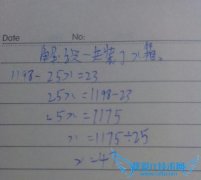 Date No:
解:设一共装了x箱。
1198-25x=23
25x=1198-23
25x=1175
x=1175÷25
x=47